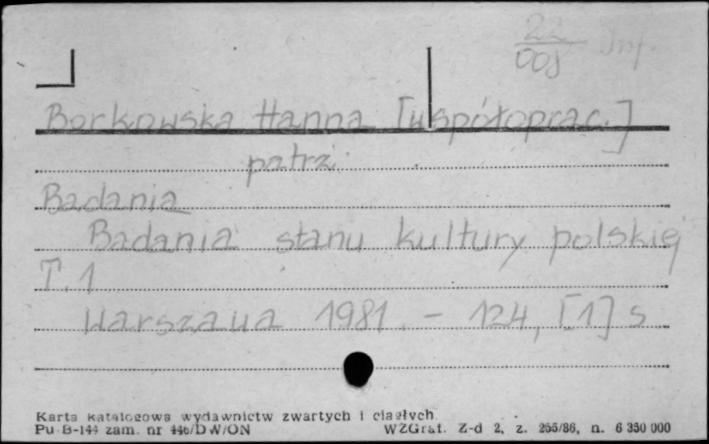 22
008 Inf.
Borkowska Hanna [współoprac.]
patrz
Badania
Badania stanu kultury polskiej
T. 1
Warszawa 1981. – 124, [1] s
Karta katalogowa wydawnictw zwartych i ciągłych
Pu B-144 zam. nr /DW/ON WZGraf. Z-d 2, z. /86, n. 6 350 000